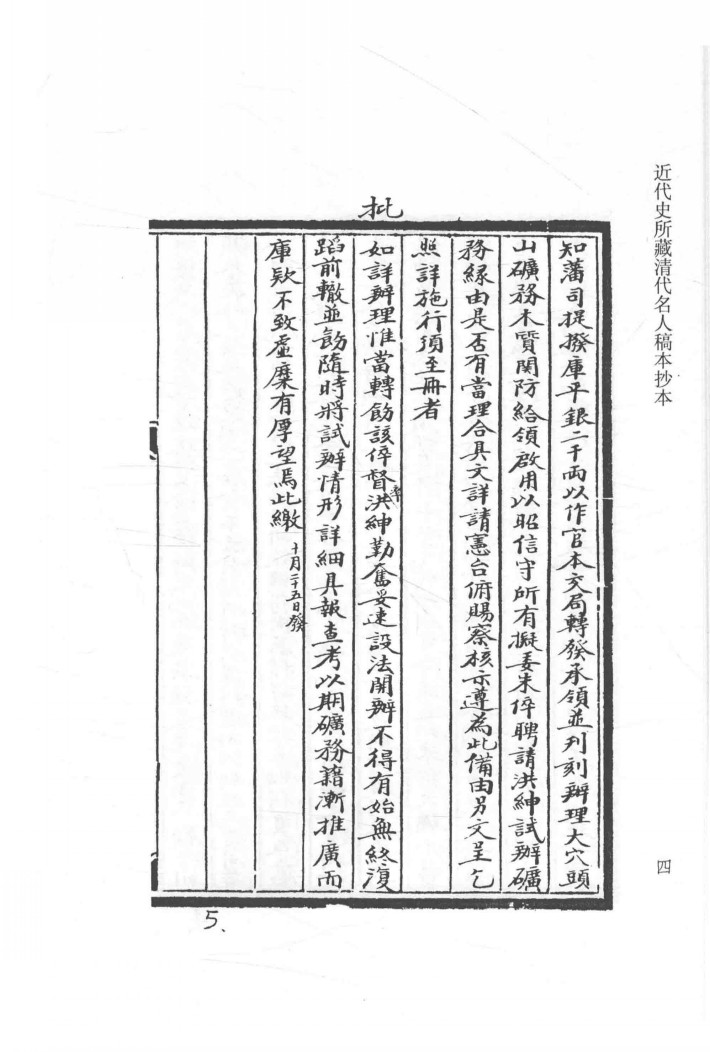 近代史所藏清代名人稿本抄本
四
知藩司提撥庫平銀二千兩以作官本交局轉發承領並刋刻辦理大穴頭
山礦務木質関防給領啟用以昭信守所有擬委朱倅聘請洪紳試辦礦
務緣由是否有當理合具文詳請憲台俯賜察核示遵為此備由另文呈乞
照詳施行須至冊者
批
如詳辦理惟當轉飭該倅督率洪紳勤奮妥速設法開辦不得有始無終復
蹈前轍並飭隨時將試辦情形詳細具報查考以期礦務藉漸推廣而
庫欵不致虛糜有厚望焉此繳 十月二十五日發
5.